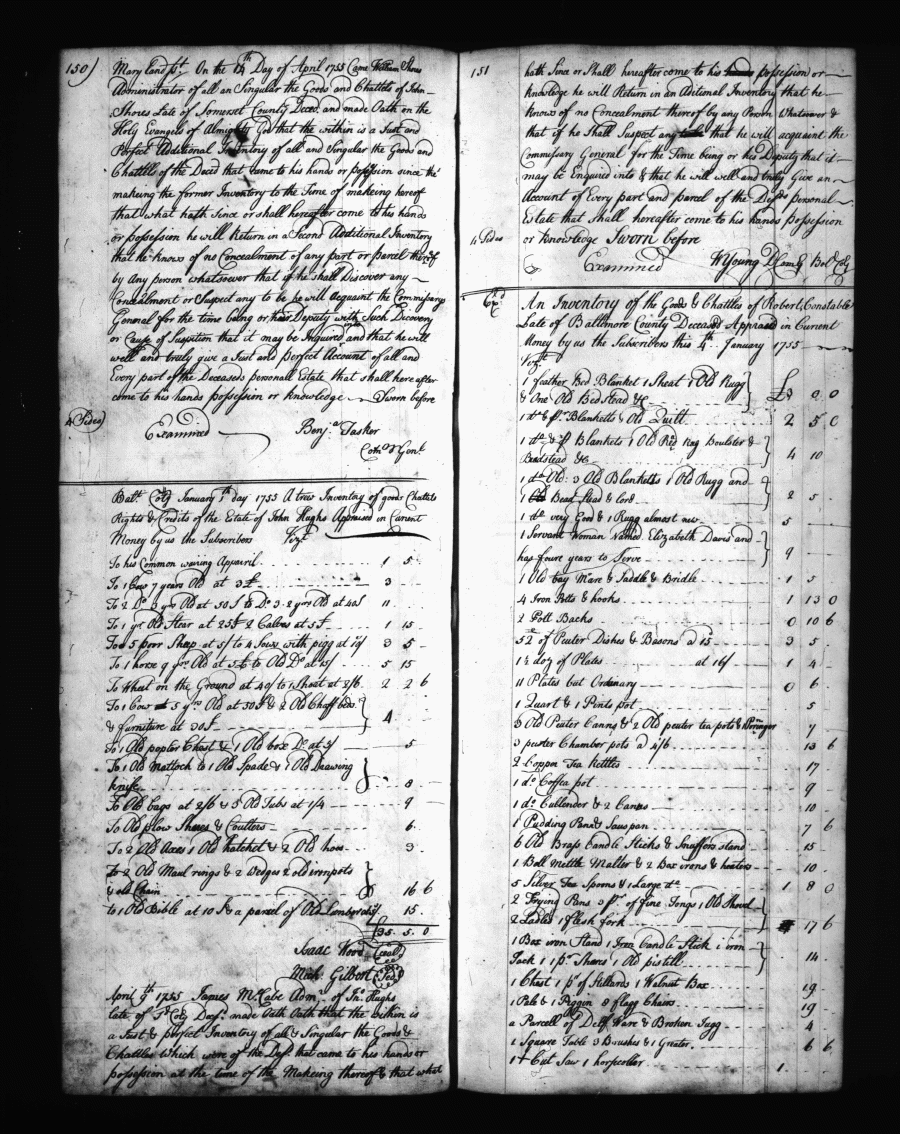 150)
Maryland Sst. On the 14th Day of April 1755 Came William Shores
Administrator of all an Singular the Goods and Chattles of John
Shores Late of Somerset County Deced and made Oath on the
Holy Evangels of Almighty God that the within is a Just and
Perfect Additional Inventory of all and Singular the Goods and
Chattles of the Deced that Came to his hands or possession since the
makeing the former Inventory to the Time of makeing hereof
that what hath Since or shall hereafter come to his hands
or possession he will Return in a Second Additional Inventory
that he knows of no Concealment of any part or parcel thereof
by any person whatsoever that if he shall Discover any
Concealment or Suspect any to be he will acquaint the Commissary
General for the time being or his Deputy with Such Discovery
or Cause of Suspition that it may be Inquired and that he will
well and truly give a Just and perfect Account of all and
Every part of the Deceaseds personall Estate that shall hereafter
come to his hands possession or knowledge Sworn before
4 Sides
Examined Benj.a Tasker
Com.y Genl.
Balt. Coty January 1st day 1755 A trew Inventry of goods Chattels
Rights & Credits of the Estate of John Hughs Appraised in Current
Money by us the Subscribers Vizt
To his Common waring Apparril 1 5
To 1 Cow 7 years Old at 3£ 3
To 2 Do 3 yrs Old at 50s to Do 3. 2 yrs Old at 40s 11
To 1 yr Old Stear at 25s 2 Calves at 5s 1 15
To 5 porr Sheep at 5/ to 4 Sows with piggs at 10/ 3 5
To 1 horse 9 yrs Old at 5£ to Old Do at 15/ 5 15
To Wheat on the Ground at 40/ to 1 Shoat at 2/6 2 2 6
To 1 Cow at 5 yrs Old at 50s & 2 Old Chaff beds
& furniture at 30s 4
To 1 Old popler Chest & 1 Old box Do at 5/ 5
To 1 Old Mattock to 1 Old Spade & 1 Old Drawing
knife 8
To Old bags at 2/6 & 5 Old Tubs at 1/4 9
To Old plow Shares & Coulters 6
To 2 Old Axes 1 Old hatchet & 2 Old hoes 3
To 2 Old Maul rings & 2 Wedges 2 old iron pots
& old Chain 16 6
to 1 Old Bible at 10s & a parcel of Old 15
£35 5 0
Isaac Wood (Seal)
Mich. Gilbert (Seal)
April 9th 1755 James McCabe Admr. of Jno. Hughs
late of Bo. Coty Decd. made Oath that the within is
a Just & perfect Inventory of all & Singular the Goods &
Chattles which were of the Decd. that came to his hands or
possession at the time of the Makeing thereof & that what
151
hath Since or Shall hereafter come to his possession or
knowledge he will Return in an Aditional Inventory that he
knows of no Concealment thereof by any Person Whatsoever &
that if he Shall Suspect any that he will acquaint the
Commissary General for the Time being or his Deputy that it
may be Enquired into & that he will well and truly Give an
Account of Every part and parcel of the Deceds personal
Estate that shall hereafter come to his hands possession
4 Sides
or knowledge Sworn before
Examined W Young D Comy Balt. Coty
Exd
An Inventory of the Goods & Chattles of Robert Constable
Late of Baltimore County Deceased Appraisd in Current
Money by us the Subscribers this 4th January 1755
Vizt
1 feather Bed Blanket 1 Sheat 1 Old Rugg
& One Old Bedstead &c £3 0 0
1 do & pr. Blanketts & Old Quilt 2 5 0
1 do & pr Blankets 1 Old Red Rug Boulster &
Bedstead &c 4 10
1 do Old 3 Old Blanketts 1 Old Rugg and
1 Bead Stead & Cord 2 5
1 do very Good & 1 Rugg almost new 5
1 Servant Woman Named Elizabeth Davis and
has foure years to Serve 9
1 Old bay Mare & Saddle & Bridle 1 5
4 Iron Potts & hooks 1 13 0
2 Pott Racks 0 10 6
52 of Peuter Dishes & Basons a 15 3 5
1½ doz of Plates at 16/ 1 4
11 Plates but Ordinary 0 6
1 Quart & 1 Pint pot 5
3 Old Peuter Canns & 2 Old peuter tea pots & Porringer 7
3 pewter Chamber pots a 4/6 13 6
2 Copper Tea Kettles 17
1 do Coffea pot 9
1 do Cullender & 2 Canns 10
1 Pudding Pan & Sauspan 7 6
6 Old Brass Candle Sticks & Snuffers stand 15
1 Bell Mettle Mallet & 2 Box irons & heaters 10
5 Silver Tea Spoons & 1 Large do 1 8 0
2 Frying Pans 3 pr. of fire Tongs 1 Old Shovel
2 Ladles 1 flesh fork 17 6
1 Box iron Stand 1 Iron Candle Stick 1 iron
Jack 1 pr Shares 1 Old pistill 14
1 Chest 1 pr of Stillards 1 Walnut Box 19
1 Pale & 1 Piggin 8 flagg Chairs 19
a Parcell of Delf Ware & Broken Jugg 4
1 Square Table 3 Brushes & 1 Greater 6 6
1 + Cut Saw 1 horse coller 1